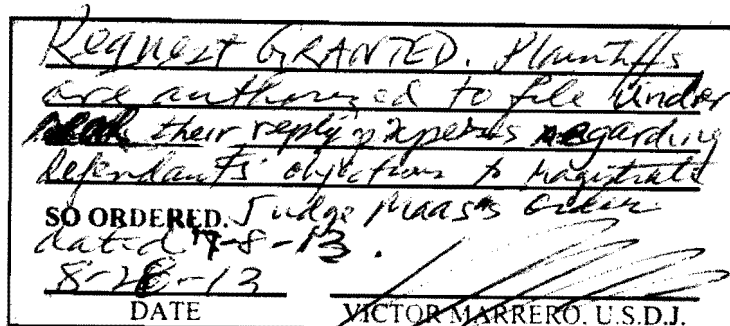 Request GRANTED. Plaintiffs
are authorized to file Under
their reply papers regarding
defendants' objections to Magistrate
SO ORDERED. Judge Maas's Order
dated 7-8-13.
8-28-13
DATE VICTOR MARRERO. U.S.D.J.